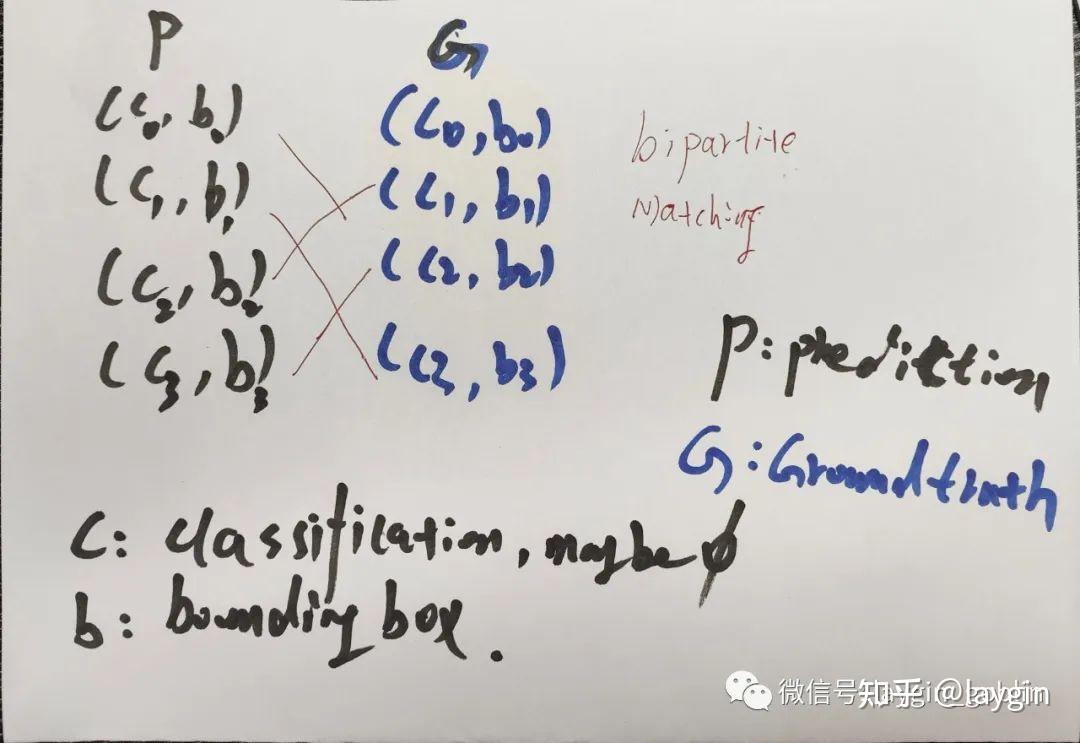 P G
(c₀, b₀) (c₀, b₀)
(c₁, b₁) (c₁, b₁)
(c₂, b₂) (c₂, b₂)
(c₃, b₃) (c3, b₃)
bipartite
Matching
P: prediction
G: Groundtruth
C: classification, maybe ∅
b: bounding box.
微信号
知乎 @laygin